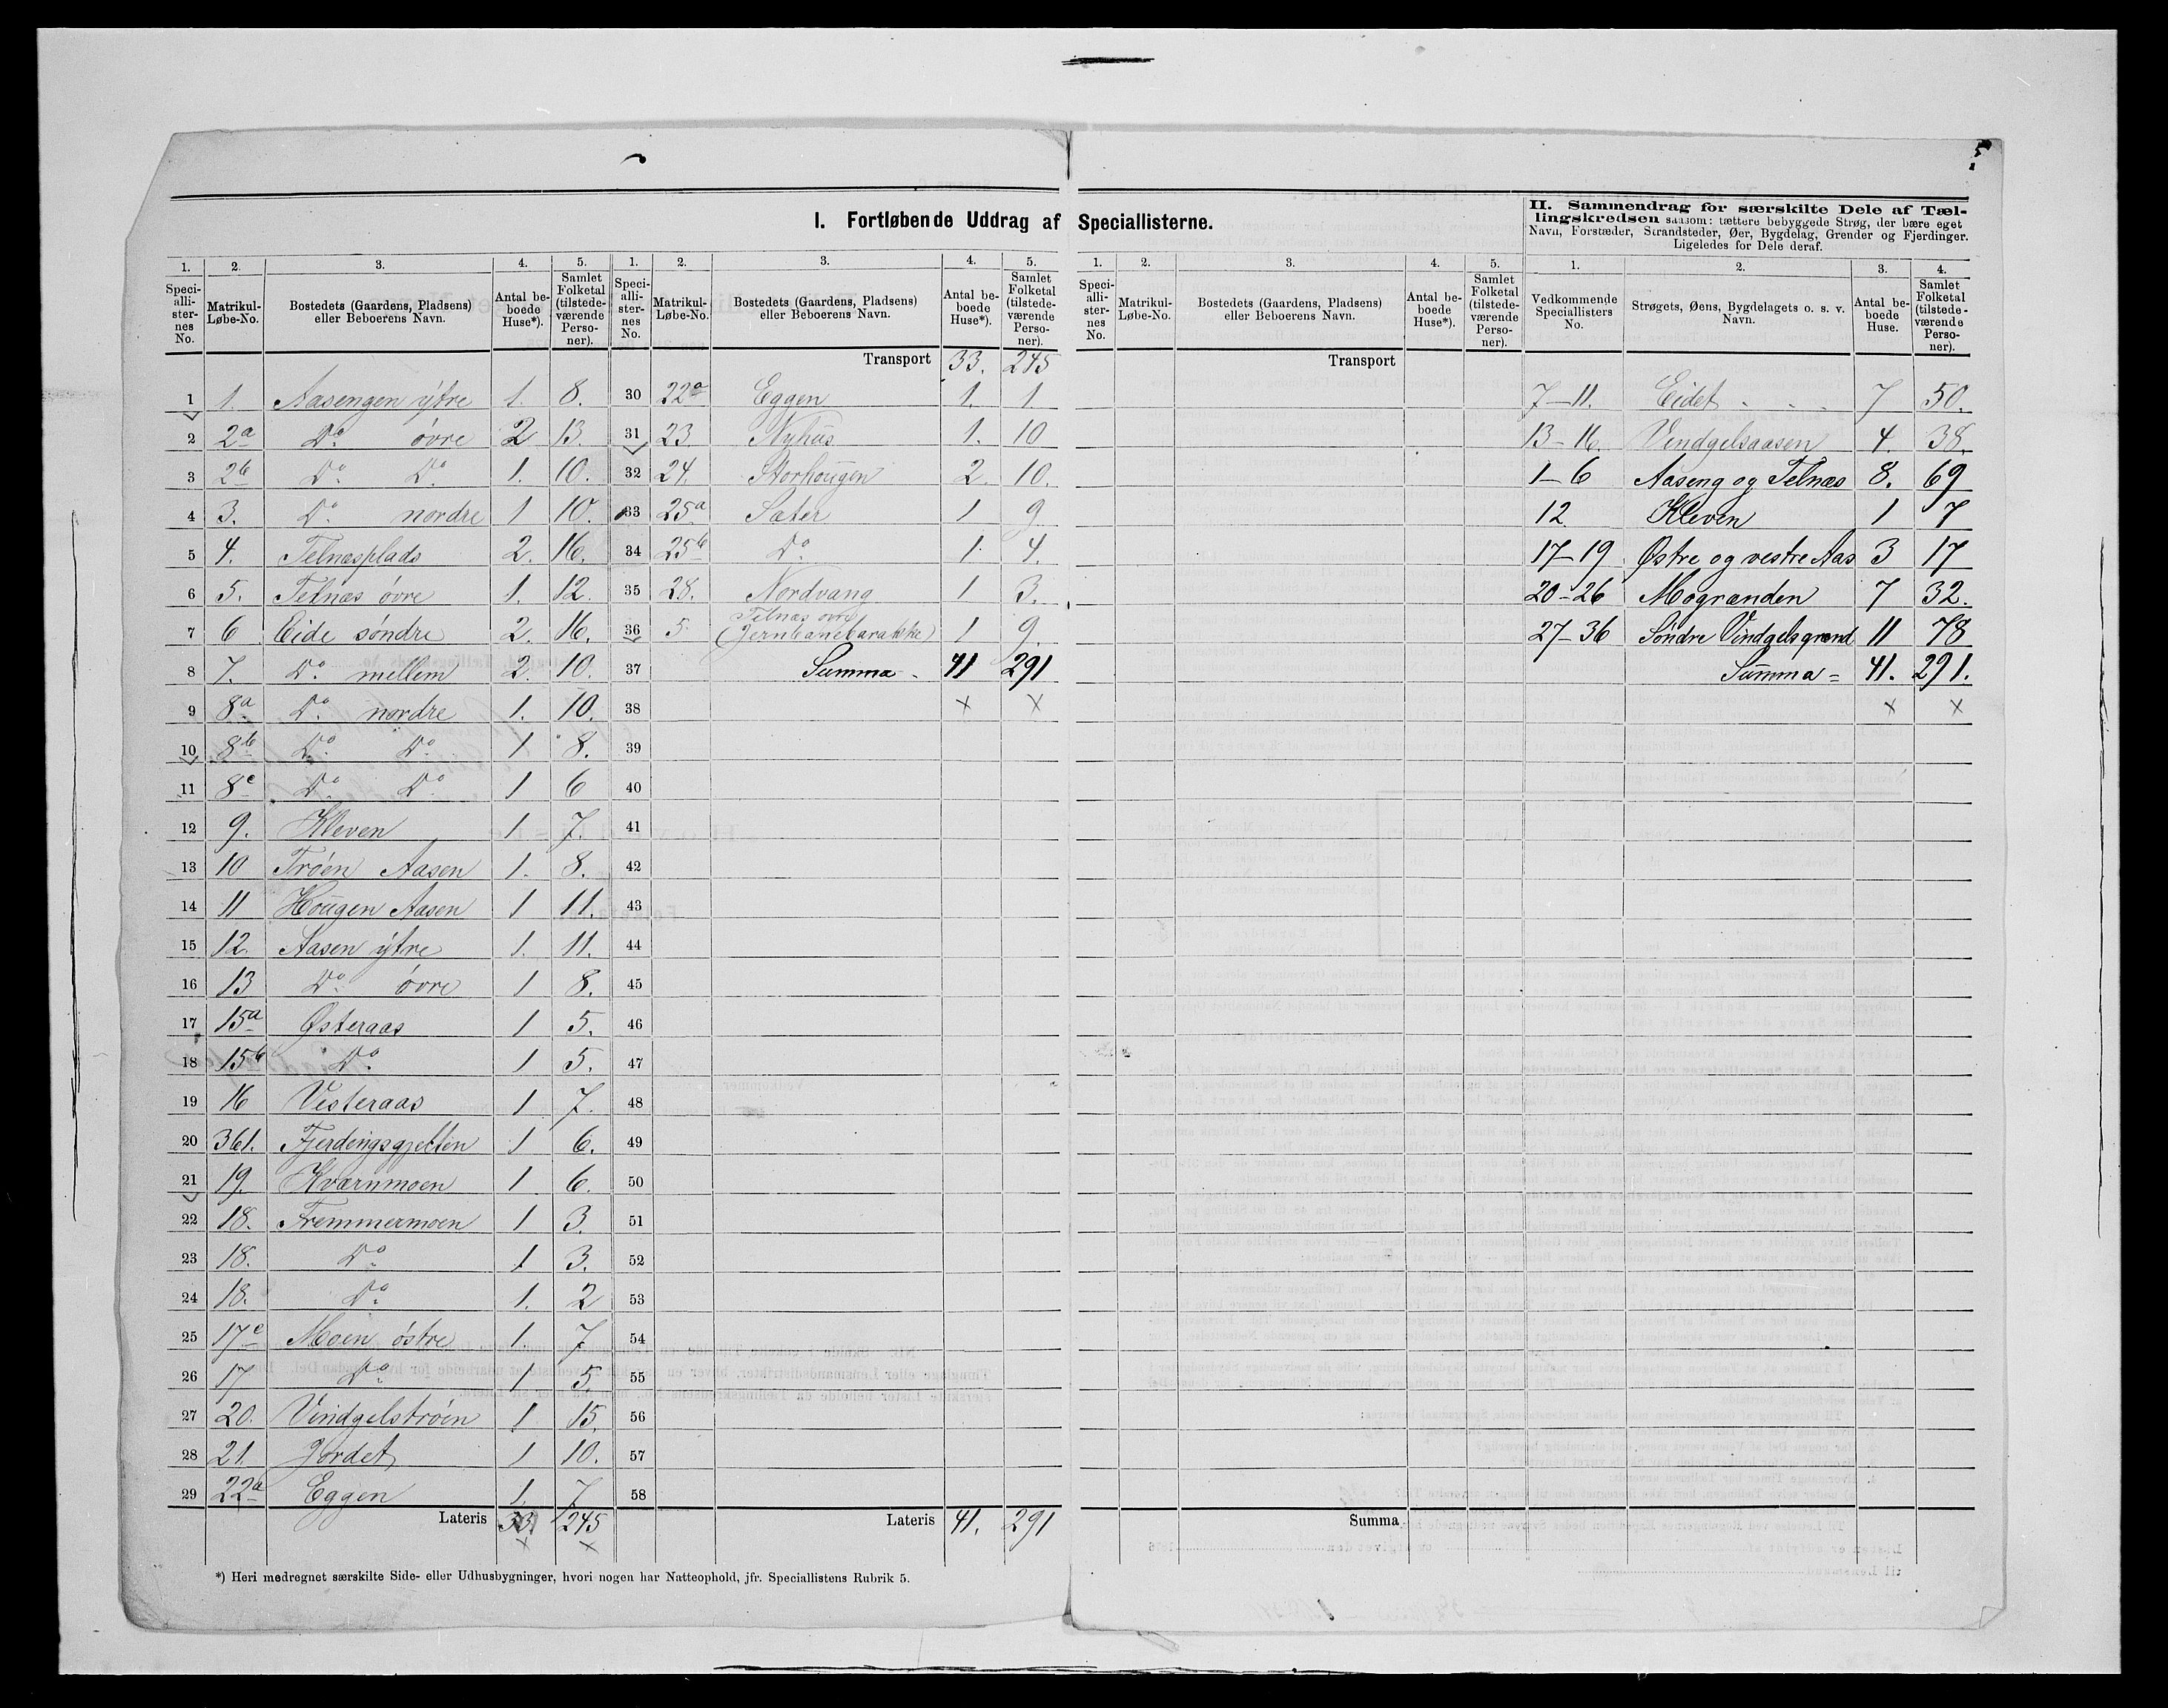 5.
I. Fortløbende Uddrag af Speciallisterne.
II. Sammendrag for særskilte Dele af Tæl-
lingskredsen saasom: tættere bebyggede Strøg, der bære eget
Navn, Forstæder, Strandsteder, Øer, Bygdelag, Grender og Fjerdinger.
Ligeledes for Dele deraf.
1. 2. 3. 4. 5.
Speci-alli-ster-nes No. Matrikul-Løbe-No. Bostedets (Gaardens, Pladsens) eller Beboerens Navn. Antal be-boede Huse*). Samlet Folketal (tilstede-værende Perso-ner).
1 1. Aasengen ytre 1. 8.
2 2a Do øvre 2 13.
3 2b Do Do 1. 10.
4 3. Do nordre 1 10.
5 4. Telnæsplads 2. 16.
6 5. Telnæs øvre 1. 12.
7 6 Eide søndre 2. 16.
8 7. Do mellem 2. 10.
9 8a Do nordre 1. 10.
10 8b Do Do 1 8.
11 8c Do Do 1 6
12 9. Kleven 1 7.
13 10 Trøen Aasen 1. 8.
14 11 Hougen Aasen 1 11.
15 12. Aasen ytre 1. 11.
16 13 Do øvre 1 8.
17 15a Østeraas 1 5.
18 15b Do 1 5.
19 16 Vesteraas 1 7.
20 361. Fjerdingsgjelten 1 6.
21 19. Kværnmoen 1. 6.
22 18. Fremmermoen 1 3.
23 18. Do 1 3.
24 18. Do 1. 2
25 17c Moen østre 1. 7
26 17 Do 1 5.
27 20. Vindgelstrøen 1 15.
28 21. Jordet 1 10.
29 22a Eggen 1. 7.
Lateris 33. 245
1. 2. 3. 4. 5.
Speci-alli-ster-nes No. Matrikul-Løbe-No. Bostedets (Gaardens, Pladsens) eller Beboerens Navn. Antal be-boede Huse*). Samlet Folketal (tilstede-værende Perso-ner).
Transport 33. 245
30 22a Eggen 1. 1.
31 23 Nyhus 1. 10
32 24. Storhougen 2. 10.
33 25a Sæter 1 9
34 25b Do 1. 4.
35 28. Nordvang 1 3.
36 5. Telnæs øvre (Jernbanebarakke) 1 9.
37 Summa 41 291
38
39
40
41
42
43
44
45
46
47
48
49
50
51
52
53
54
55
56
57
58
Lateris 41. 291
1. 2. 3. 4. 5.
Speci-alli-ster-nes No. Matrikul-Løbe-No. Bostedets (Gaardens, Pladsens) eller Beboerens Navn. Antal be-boede Huse*). Samlet Folketal (tilstede-værende Perso-ner).
Transport
Summa
1. 2. 3. 4.
Vedkommende Speciallisters No. Strøgets, Øens, Bygdelagets o. s. v. Navn. Antal be-boede Huse. Samlet Folketal (tilstede-værende Perso-ner).
7-11. Eidet 7 50.
13-16. Vindgelsaasen 4. 38.
1-6 Aaseng og Telnæs 8. 69
12 Kleven 1 7
17-19 Østre og vestre Aas 3 17
20-26 Mogrænden 7 32.
27-36 Søndre Vindgelsgrænd 11 78
Summa = 41. 291.
*) Heri medregnet særskilte Side- eller Udhusbygninger, hvori nogen har Natteophold, jfr. Speciallistens Rubrik 5.